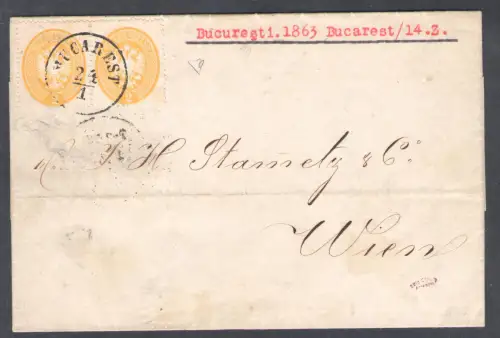 Bucureşti.1863 Bucarest/14.Z.
BUCAREST
24
1
J. H. Stametz & Co:
Wien